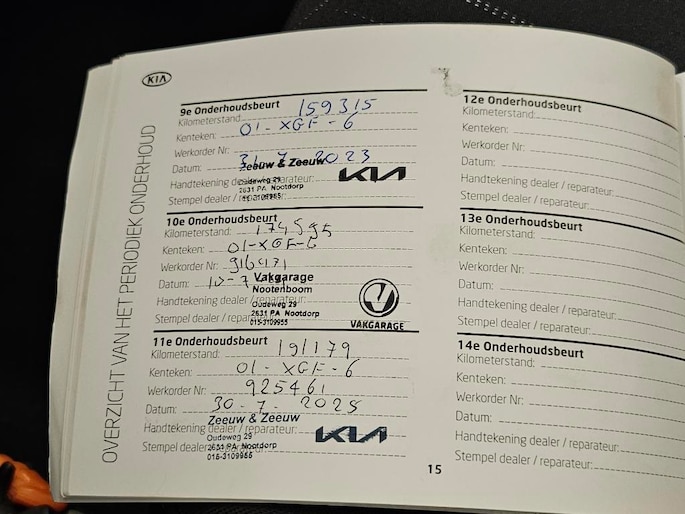 KIA
OVERZICHT VAN HET PERIODIEK ONDERHOUD
9e Onderhoudsbeurt
Kilometerstand: 159315
Kenteken: 01-XGF-6
Werkorder Nr:
Datum: 31-7-2023
Zeeuw & Zeeuw
Handtekening dealer / reparateur:
Oudeweg 29
2631 PA Nootdorp
KIA
Stempel dealer / reparateur:
015-3109955
10e Onderhoudsbeurt
Kilometerstand: 174595
Kenteken: 01-XGF-6
Werkorder Nr: 916471
Datum: 10-7-
Vakgarage
Nootenboom
Handtekening dealer / reparateur:
Oudeweg 29
2631 PA Nootdorp
Stempel dealer / reparateur:
015-3109955
VAKGARAGE
11e Onderhoudsbeurt
Kilometerstand: 191179
Kenteken: 01-XGF-6
Werkorder Nr: 925461
Datum: 30-7-2025
Zeeuw & Zeeuw
Handtekening dealer / reparateur:
Oudeweg 29
2631 PA Nootdorp
KIA
Stempel dealer / reparateur:
015-3109955
12e Onderhoudsbeurt
Kilometerstand:
Kenteken:
Werkorder Nr:
Datum:
Handtekening dealer / reparateur:
Stempel dealer / reparateur:
13e Onderhoudsbeurt
Kilometerstand:
Kenteken:
Werkorder Nr:
Datum:
Handtekening dealer / reparateur:
Stempel dealer / reparateur:
14e Onderhoudsbeurt
Kilometerstand:
Kenteken:
Werkorder Nr:
Datum:
Handtekening dealer / reparateur:
Stempel dealer / reparateur:
15